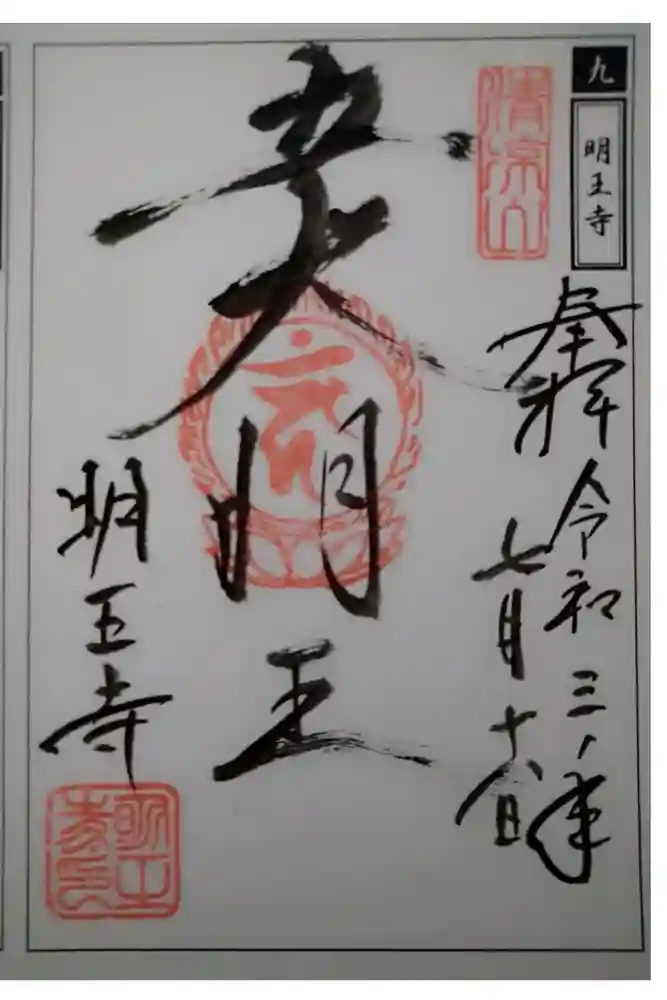 九
明王寺
清涼山
奉拝
令和三ノ年
七月十八日
五大明王
明王寺
明王
寺印